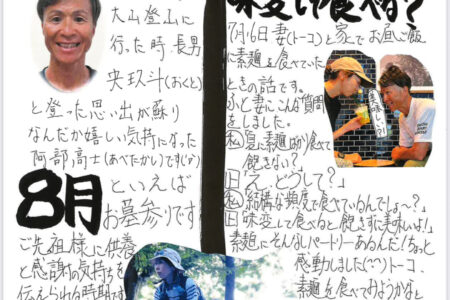 大山登山に
行った時、長男
央玖斗(おくと)
と登った思い出が蘇り
なんだか嬉しい気持になった
阿部高士(あべたかし)です(^^)
8月といえば
お墓参りです
ご先祖様に供養
と感謝の気持ちを
伝えられる時期です
味変して食べる?
7月16日妻(トーコ)と家でお昼ご飯
に素麺を食べていた
ときの話です。
ふと妻にこんな質問
をしました。
私「夏に素麺ばっか食べて
飽きない?
ト「え、どうして?」
私「結構な頻度で食べているんでしょ~?」
ト「味変して食べると飽きずに美味いよ!」
素麺にそんなレパートリーあるんだ!ちょっと
感動しました(^^)トーコ、
素麺を食べてみようかなと
美味しい?!